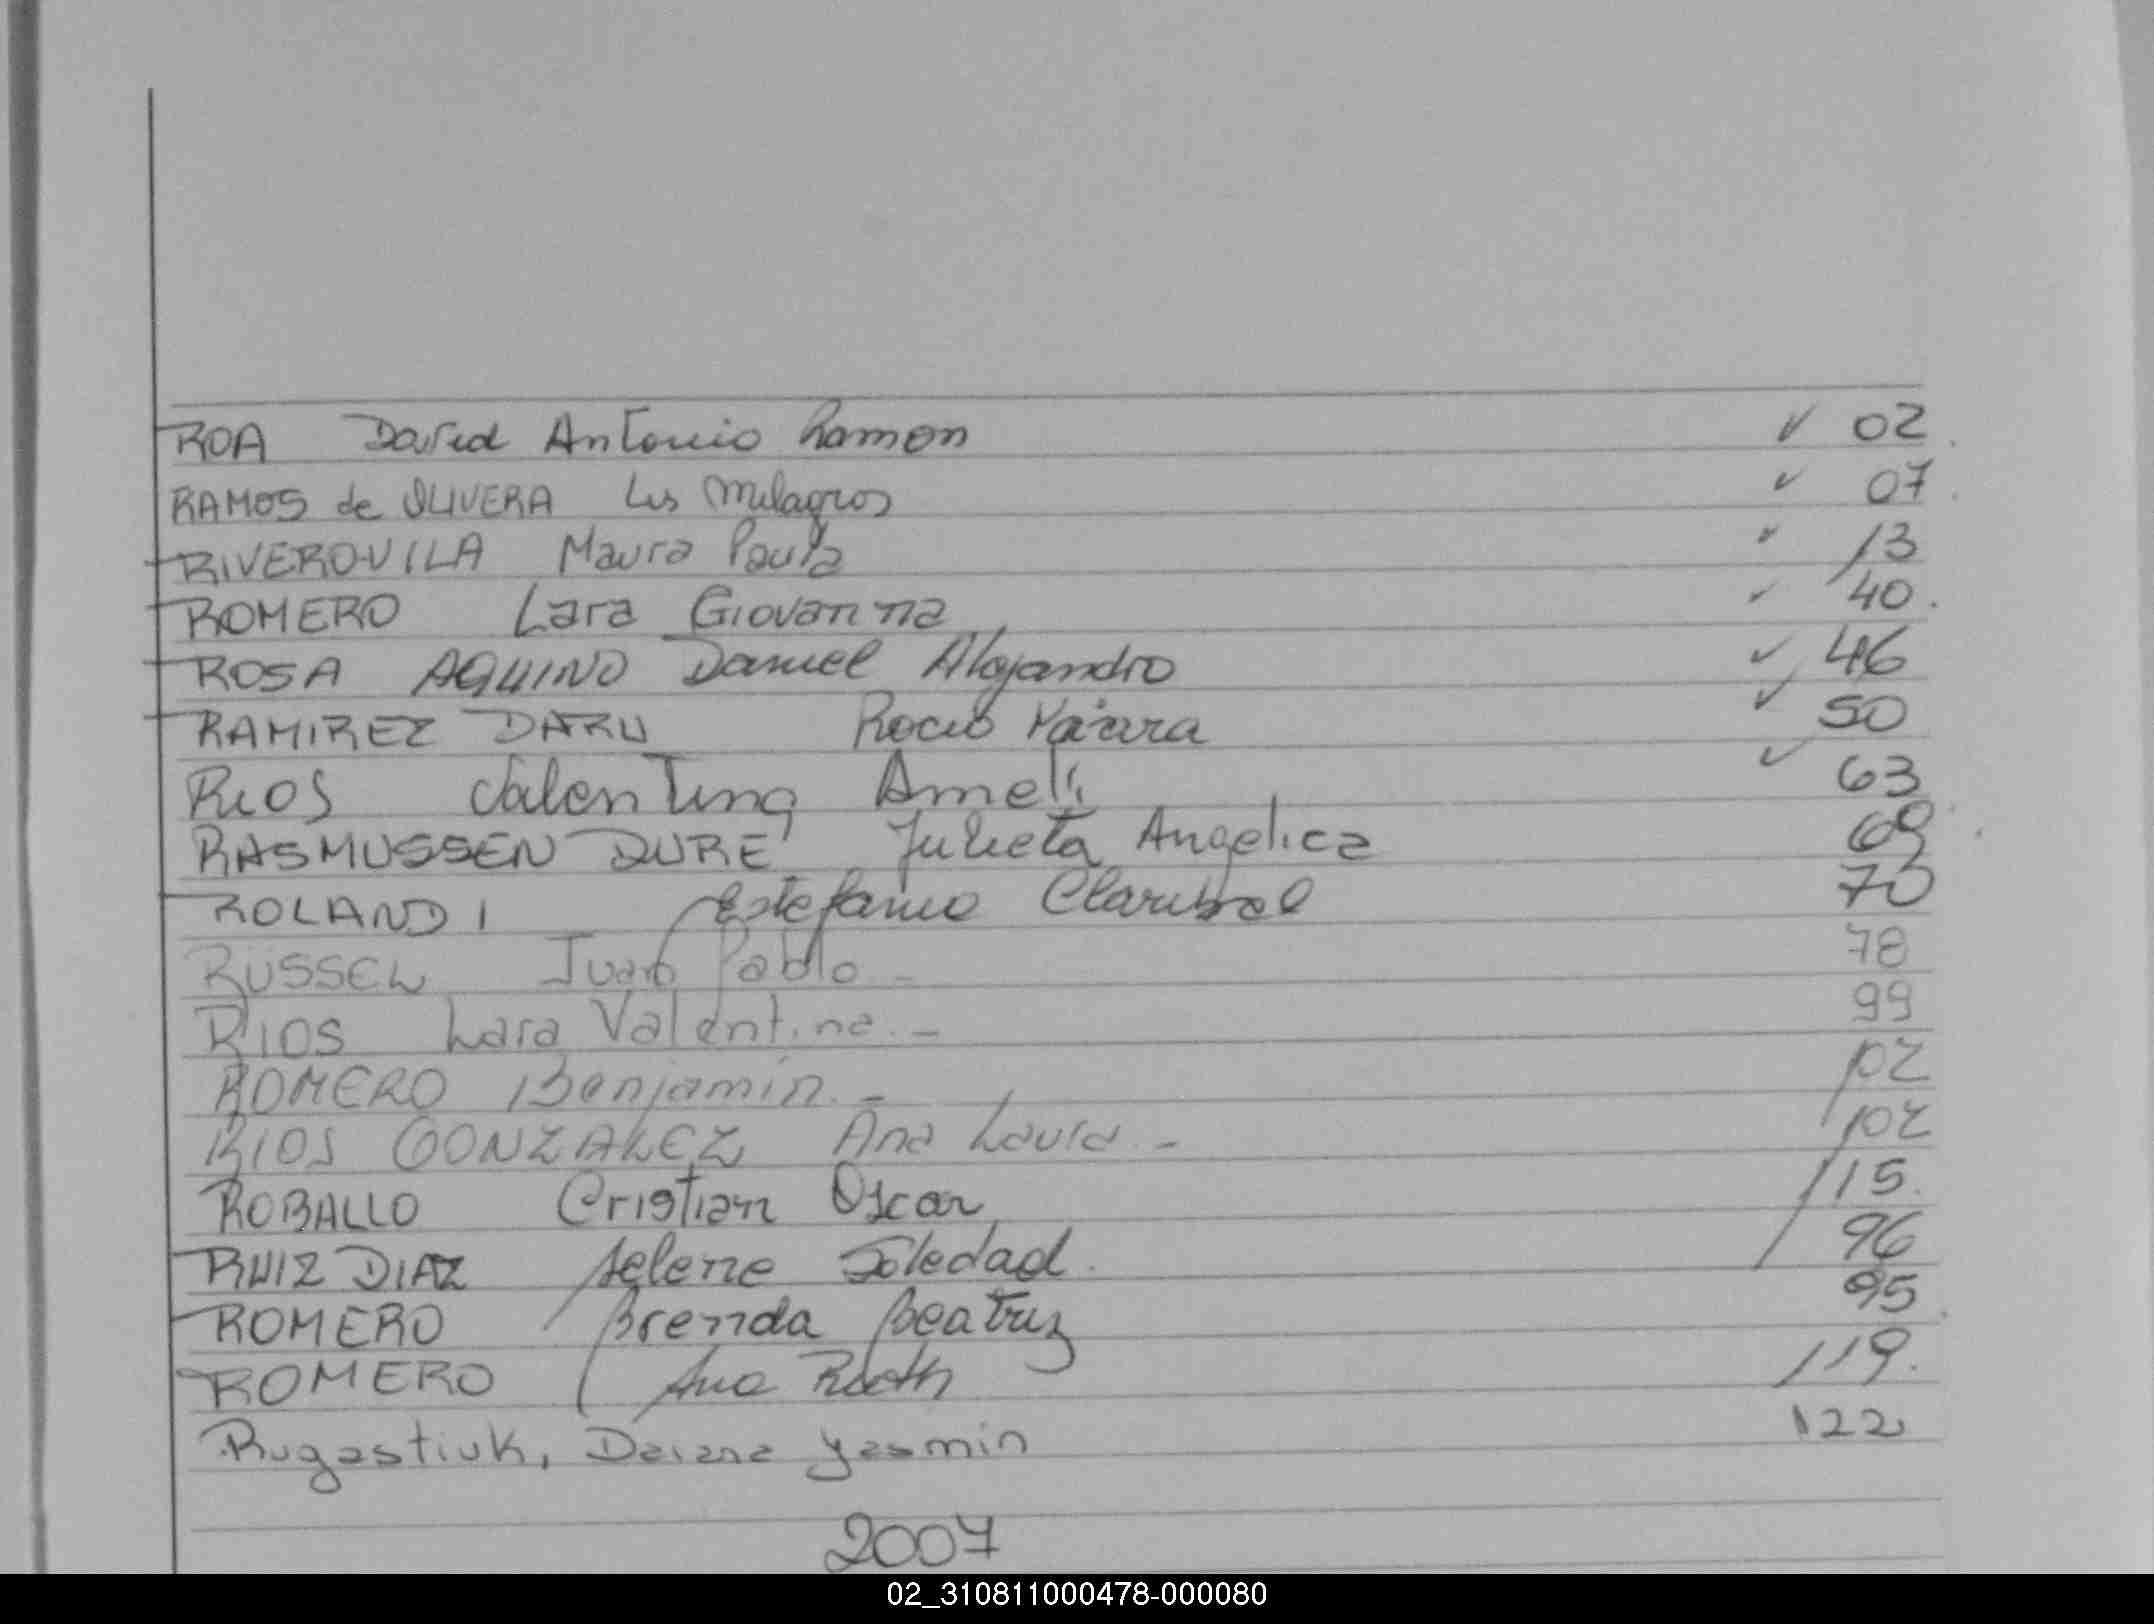 ROA David Antonio Ramon ✓ 02
RAMOS de OLIVERA Lis Milagros ✓ 07
RIVERO VILA Maura Paula ✓ 13
ROMERO Lara Giovanna ✓ 40
ROSA AQUINO Daniel Alejandro ✓ 46
RAMIREZ DARU Rocio ✓ 50
RIOS Valentina Ameli ✓ 63
RASMUSSEN DURE Julieta Angelica 69
ROLANDI Estefania Claribel 70
RUSSEL Juan Pablo - 78
RIOS Lara Valentina.- 99
ROMERO Benjamin.- 102
RIOS GONZALEZ Ana Laura.- 102
ROBALLO Cristian Oscar 115
RUIZ DIAZ Selene Soledad. 96
ROMERO Brenda Beatriz 95
ROMERO Ana Ruth 119
Rugastiuk, Daiana Yasmin 122
2007
02_310811000478-000080